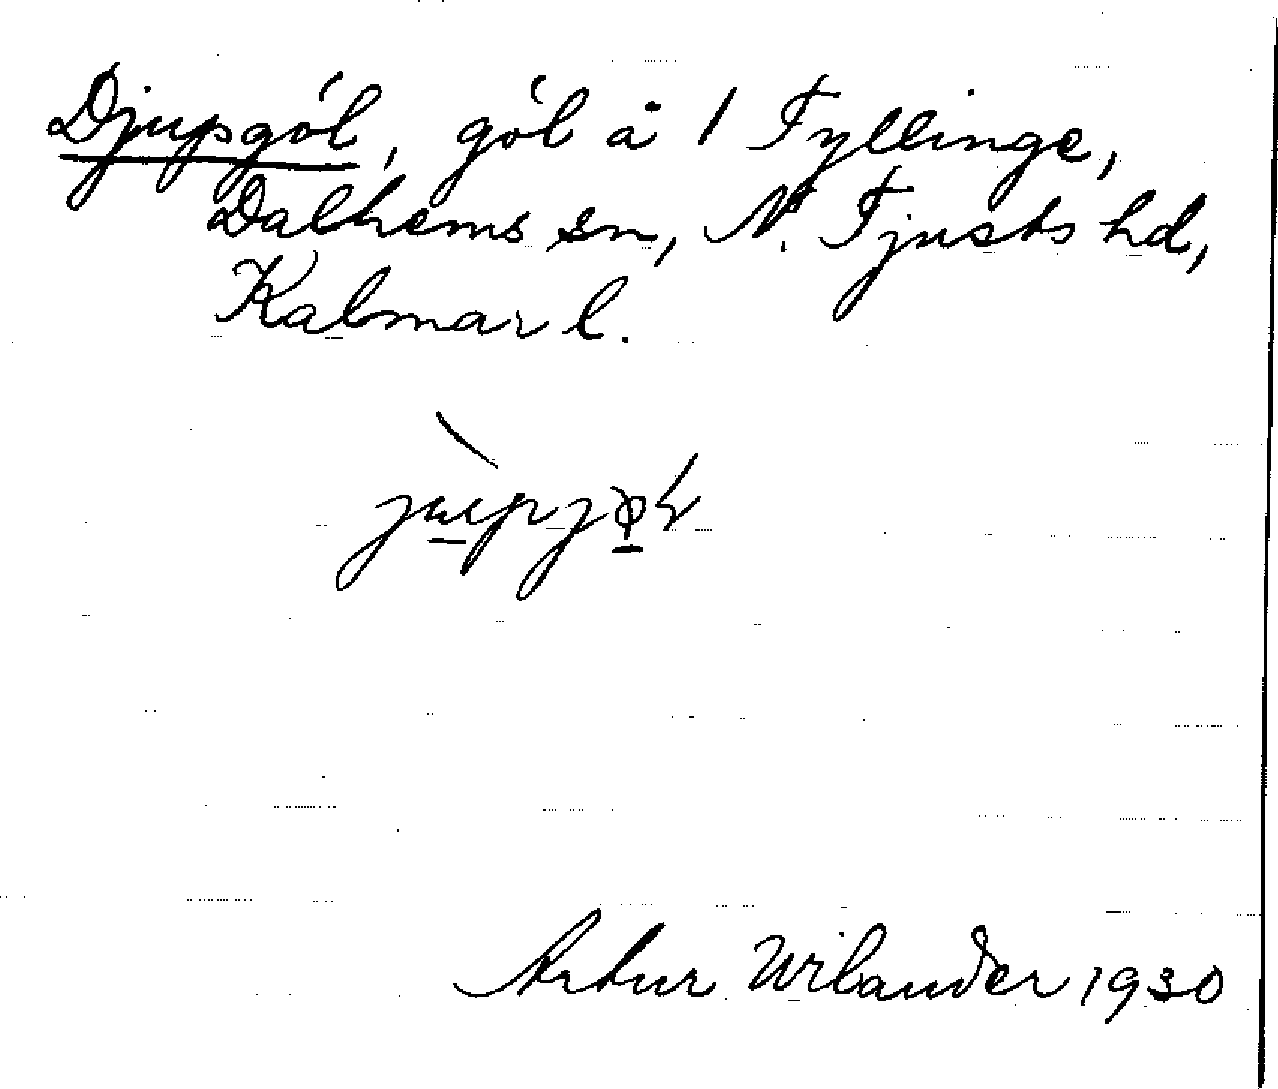 Djupgól, gól å 1 Fyllinge,
Dalhems sn, N. Tjusts hd,
Kalmar l.
Artur Wilander 1930